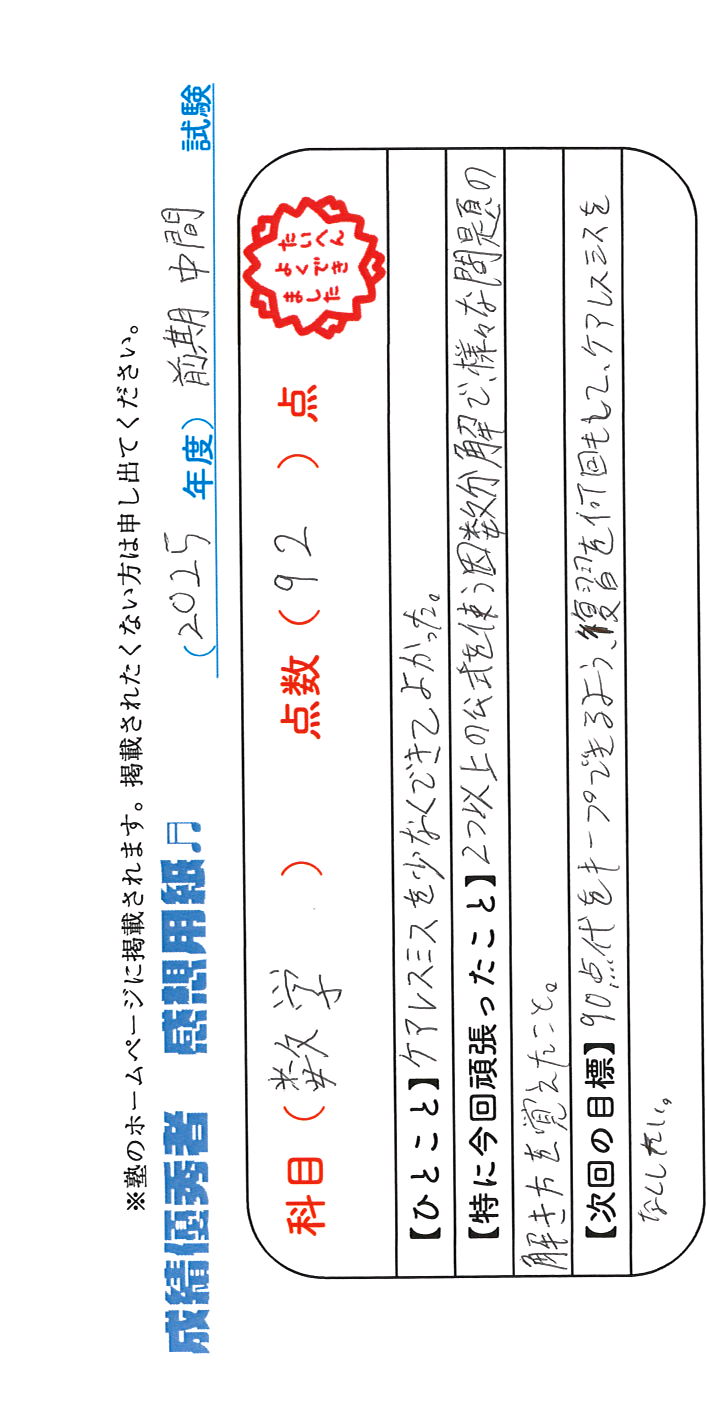 ※塾のホームページに掲載されます。掲載されたくない方は申し出てください。
成績優秀者 感想用紙♫ (2025 年度) 前期 中間 試験
科目 ( 数学 ) 点数 ( 92 ) 点
たいへん
よくでき
ました
【ひとこと】ケアレスミスを少なくできてよかった。
【特に今回頑張ったこと】2つ以上の公式を使う因数分解で、様々な問題の
解き方を覚えたこと。
【次回の目標】90点代をキープできるよう、復習を何回もして、ケアレスミスを
なくしたい。